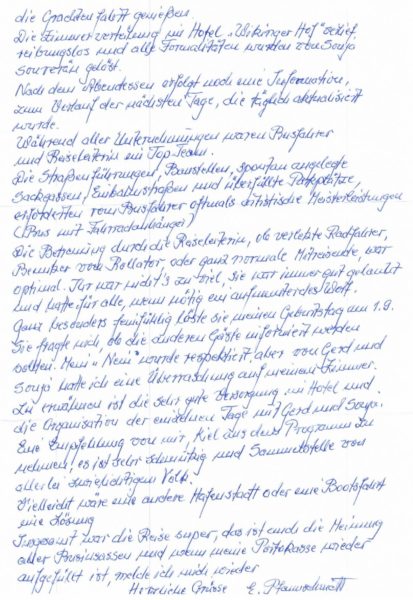 die Grachtenfahrt genießen.
Die Zimmerverteilung im Hotel „Wikinger Hof" verlief
reibungslos und alle Formalitäten wurden von Sonja
souverän gelöst.
Nach dem Abendessen erfolgt noch eine Information,
zum Verlauf der nächsten Tage, die täglich aktualisiert
wurde.
Während aller Unternehmungen waren Busfahrer
und Reiseleiterin ein Top Team.
Die Straßenführungen, Baustellen, spontan angelegte
Sackgassen, Einbahnstraßen und überfüllte Parkplätze,
erforderten vom Busfahrer oftmals artistische Meisterleistungen
(Bus mit Fahrradanhänger)
Die Betreuung durch die Reiseleiterin, ob verletzte Radfahrer,
Benutzer von Rollator oder ganz normale Mitreisende, war
optimal. Ihr war nicht's zu viel, sie war immer gut gelaunt
und hatte für alle, wenn nötig ein aufmunterndes Wort.
Ganz besonders feinfühlig löste sie meinen Geburtstag am 1.9.
Sie fragte mich, ob die anderen Gäste informiert werden
sollten. Mein „Nein" wurde respektiert, aber von Gerd und
Sonja hatte ich eine Überraschung auf meinem Zimmer.
Zu erwähnen ist die sehr gute Versorgung im Hotel und
die Organisation der einzelnen Tage mit Gerd und Sonja.
Eine Empfehlung von mir, Kiel aus dem Programm zu
nehmen, es ist sehr schmutzig und Sammelstelle von
allerlei zwielichtigem Volk.
Vielleicht wäre eine andere Hafenstadt oder eine Bootsfahrt
eine Lösung
Insgesamt war die Reise super, das ist auch die Meinung
aller Businsassen und wenn meine Portokasse wieder
aufgefüllt ist, melde ich mich wieder
Herzliche Grüsse E.